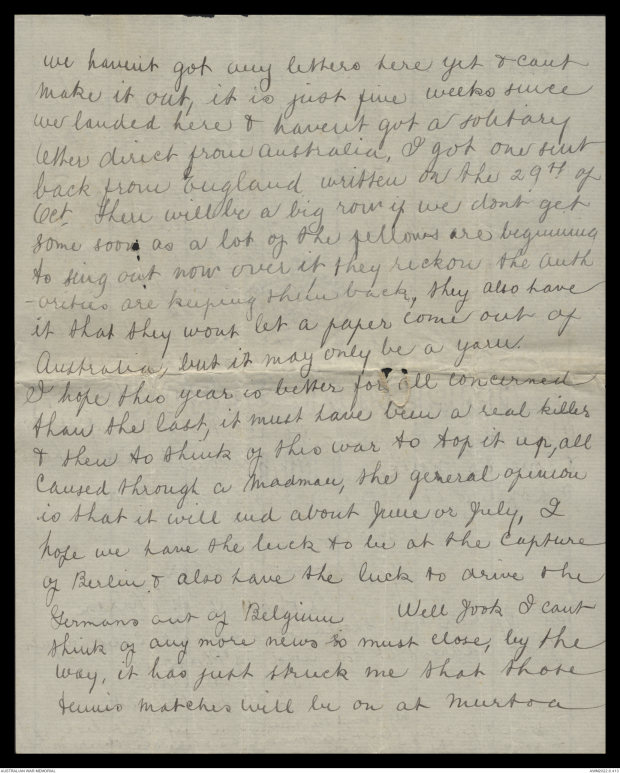 we havent got any letters here yet & cant
make it out, it is just five weeks since
we landed here & havent got a solitary
letter direct from Australia, I got one sent
back from England written on the 29th of
Oct. There will be a big row if we dont get
some soon as a lot of the fellows are beginning
to sing out now over it they reckon the auth
-orities are keeping them back, they also have
it that they wont let a paper come out of
Australia, but it may only be a yarn.
I hope this year is better for all concerned
than the last, it must have been a real killer
& then to think of this war to top it up, all
caused through a madman, the general opinion
is that it will end about June or July, I
hope we have the luck to be at the capture
of Berlin & also have the luck to drive the
Germans out of Belgium Well Jook I cant
think of any more news so must close, by the
way, it has just struck me that those
tennis matches will be on at Murtoa
AUSTRALIAN WAR MEMORIAL